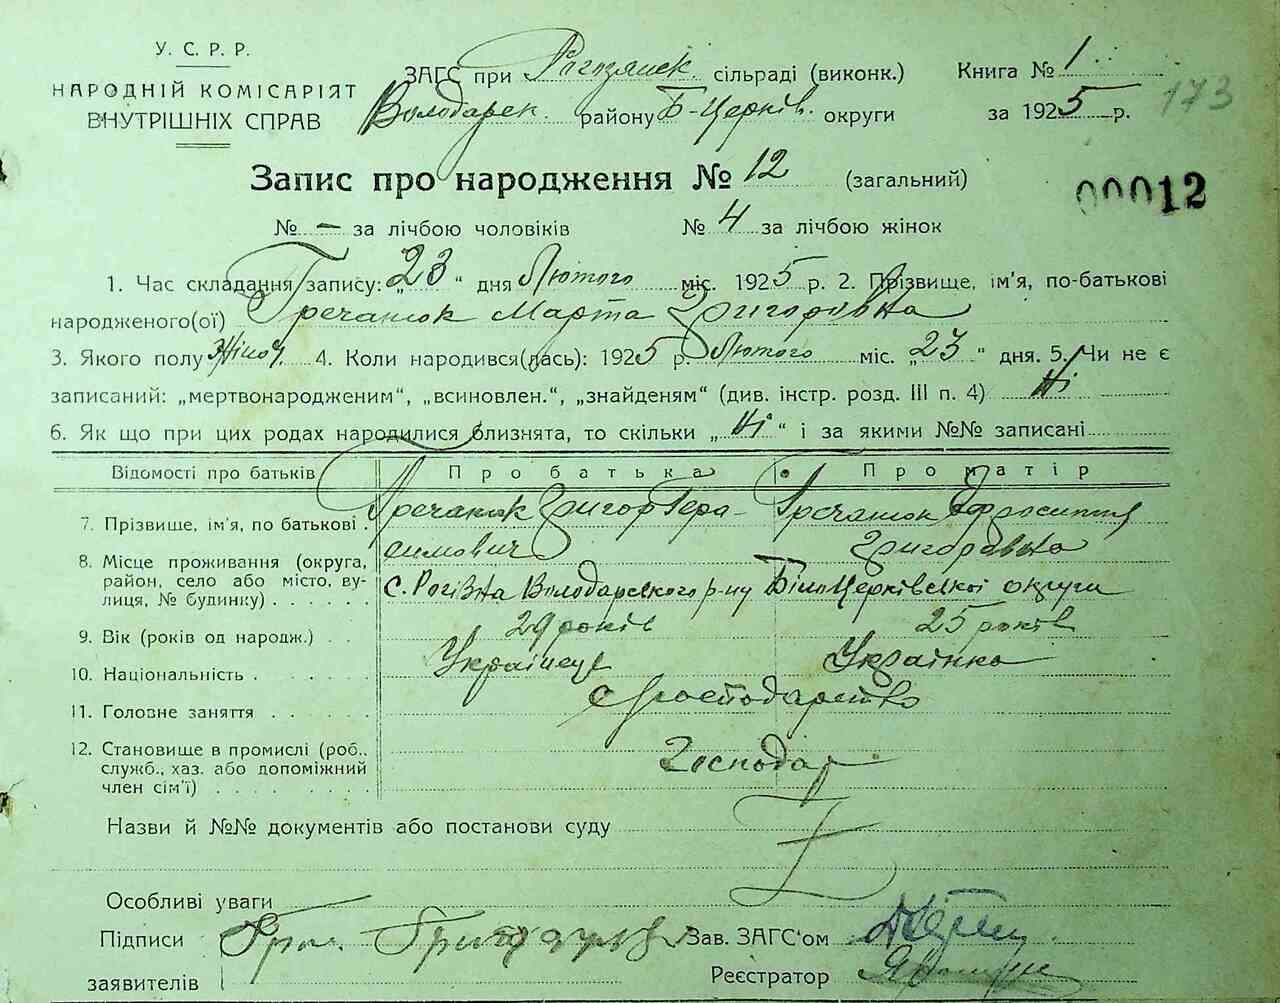 У. С. Р. Р.
НАРОДНІЙ КОМІСАРІЯТ
ВНУТРІШНІХ СПРАВ
ЗАГС при сільраді (виконк.) Книга № 1
Володарск. району Б-Церків. округи за 1925 р. 173
Запис про народження № 12 (загальний) 00012
№ — за лічбою чоловіків № 4 за лічбою жінок
1. Час складання запису: „23“ дня Лютого міс. 1925 р. 2. Прізвище, ім'я, по-батькові
народженого(ої) Гречанюк Марта Григоровна
3. Якого полу Жіноч. 4. Коли народився(лась): 1925 р. Лютого міс. „23“ дня. 5. Чи не є
записаний: „мертвонародженим“, „всиновлен.“, „знайденям“ (див. інстр. розд. III п. 4) Ні
6. Як що при цих родах народилися близнята, то скільки „Ні“ і за якими №№ записані
Відомості про батьків Про батька Про матір
7. Прізвище, ім'я, по батькові Гречанюк Григор Гера- Гречанюк
симович Григоровна
8. Місце проживання (округа,
район, село або місто, ву-
лиця, № будинку) с. Рогізна Володарського р-ну Білоцерківської округи
9. Вік (років од народж.) 29 років 25 років
10. Національність Українець Українка
11. Головне заняття с господарство
12. Становище в промислі (роб.,
служб., хаз. або допоміжний
член сім'ї) Господар
Назви й №№ документів або постанови суду
Особливі уваги
Підписи
заявителів
Зав. ЗАГС'ом
Реєстратор